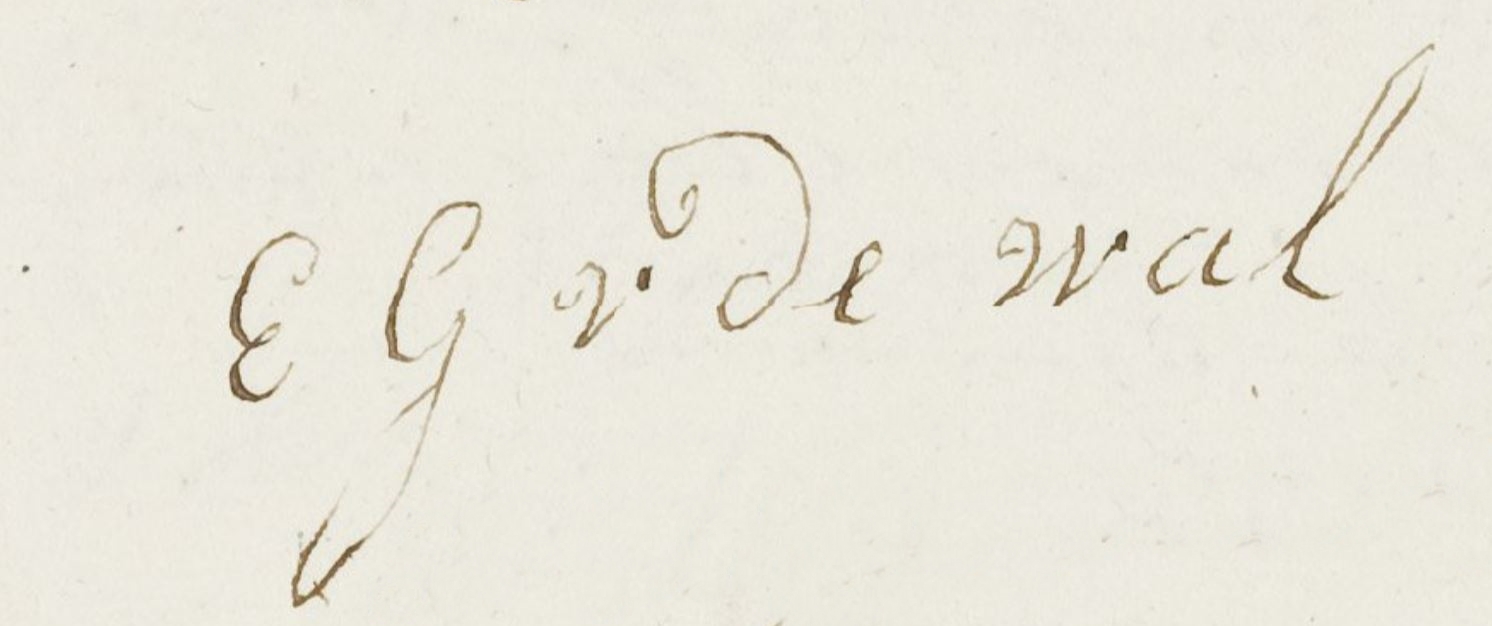 E G v De wal